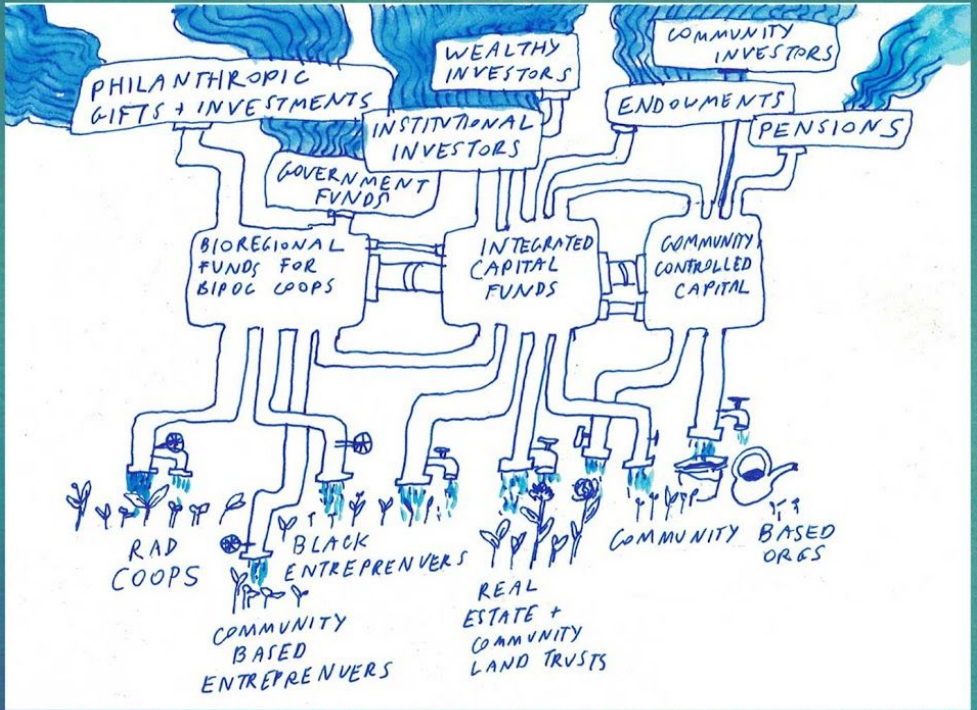 PHILANTHROPIC
GIFTS + INVESTMENTS
WEALTHY
INVESTORS
COMMUNITY
INVESTORS
INSTITUTIONAL
INVESTORS
ENDOWMENTS
PENSIONS
GOVERNMENT
FUNDS
BIOREGIONAL
FUNDS FOR
BIPOC COOPS
INTEGRATED
CAPITAL
FUNDS
COMMUNITY
CONTROLLED
CAPITAL
RAD
COOPS
BLACK
ENTREPRENUERS
COMMUNITY
BASED
ENTREPRENUERS
REAL
ESTATE +
COMMUNITY
LAND TRUSTS
COMMUNITY BASED
ORGS